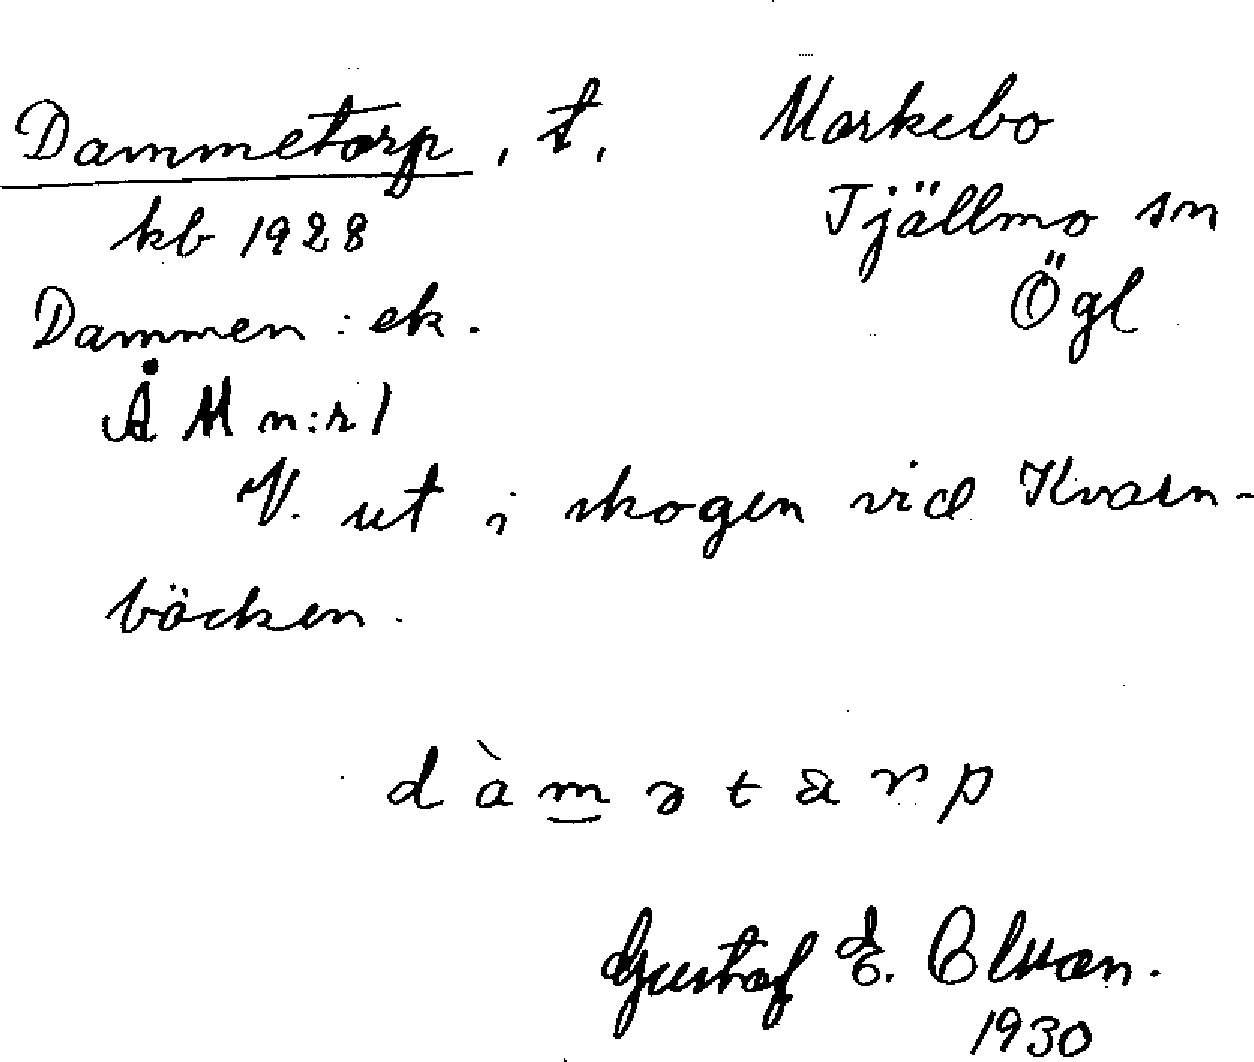 Dammetorp, t,
kb 1928
Dammen: ek.
ÅM n:r 1
Markebo
Tjällmo sn
Ögl
V. ut i skogen vid Kvarn-
bäcken.
dàmətarp
Gustaf E. Olsson.
1930